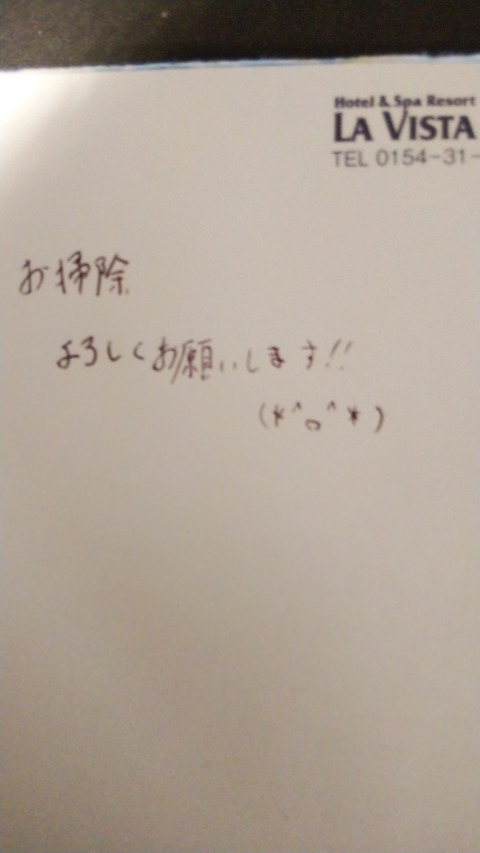 Hotel & Spa Resort
LA VISTA
TEL 0154-31-
お掃除
よろしくお願いします!!
(*^o^*)